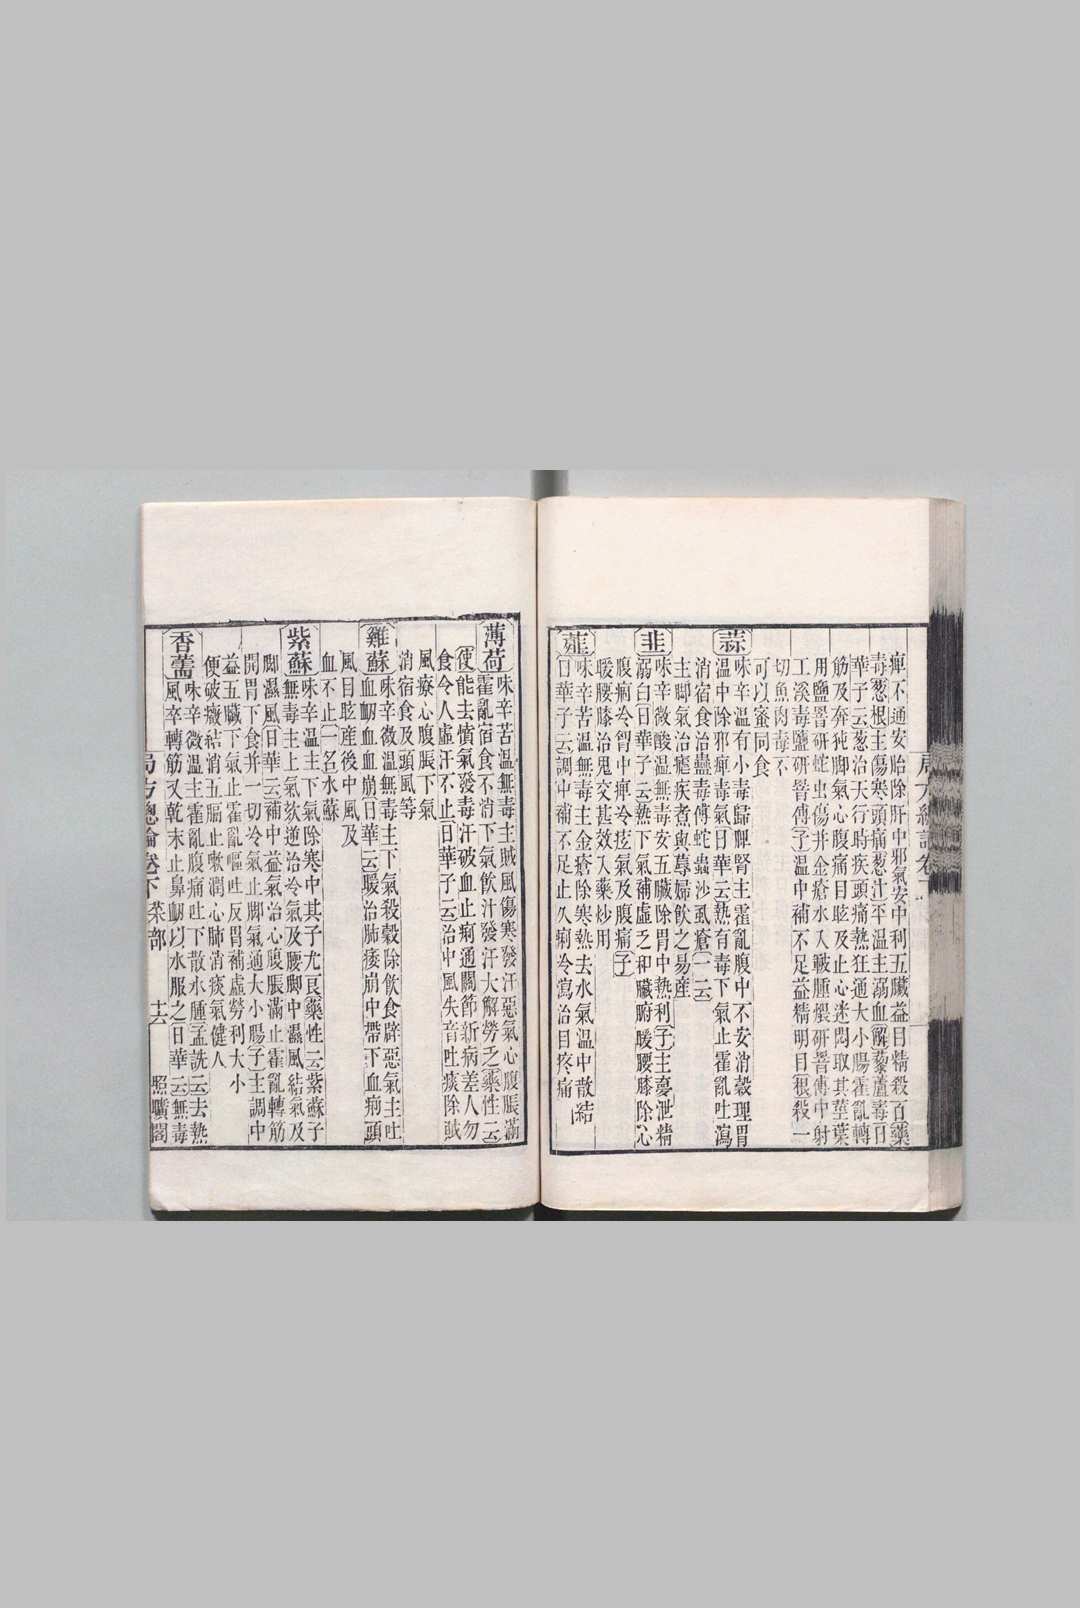 痺不通安胎除肝中邪氣安中利五臟益目精殺百藥
毒葱根主傷寒頭痛葱汁平溫主溺血解藜蘆毒日
華子云葱治天行時疾頭痛熱狂通大小腸霍亂轉
筋及奔㹠脚氣心腹痛目眩及止心迷悶取其莖葉
用鹽罯研蛇虫傷并金瘡水入皸腫煨研罯傅中射
工溪毒鹽研罯傅子溫中補不足益精明目根殺一
切魚肉毒不
可以蜜同食
蒜
味辛溫有小毒歸脾腎主霍亂腹中不安消穀理胃
溫中除邪痺毒氣日華云熱有毒下氣止霍亂吐瀉
消宿食治蠱毒傅蛇蟲沙虱瘡一云
主脚氣治瘧疾煮與蓐婦飲之易産
韭
味辛微酸溫無毒安五臟除胃中熱利子主夢泄精
溺白日華子云熱下氣補虛乏和臟腑暖腰膝除心
腹痼冷胷中痺冷痃氣及腹痛子
暖腰膝治鬼交甚效入藥炒用
薤
味辛苦溫無毒主金瘡除寒熱去水氣溫中散結
日華子云調中補不足止久痢冷瀉治目疼痛
局方總論卷下
薄荷
味辛苦溫無毒主賊風傷寒發汗惡氣心腹脹滿
霍亂宿食不消下氣飲汁發汗大解勞乏藥性云
使能去憤氣發毒汗破血止痢通關節新病差人勿
食令人虛汗不止日華子云治中風失音吐痰除賊
風療心腹脹下氣
消宿食及頭風等
雞蘇
味辛微溫無毒主下氣殺穀除飲食辟惡氣主吐
血衂血血崩日華云暖治肺痿崩中帶下血痢頭
風目眩産後中風及
血不止一名水蘇
紫蘇
味辛溫主下氣除寒中其子尤良藥性云紫蘇子
無毒主上氣欬逆治冷氣及腰脚中濕風結氣及
脚濕風日華云補中益氣治心腹脹滿止霍亂轉筋
開胃下食并一切冷氣止脚氣通大小腸子主調中
益五臟下氣止霍亂嘔吐反胃補虛勞利大小
便破癥結消五膈止嗽潤心肺消痰氣健人
香薷
味辛微溫主霍亂腹痛吐下散水腫孟詵云去熱
風卒轉筋又乾末止鼻衂以水服之日華云無毒
局方總論卷下 菜部 十六 照曠閣